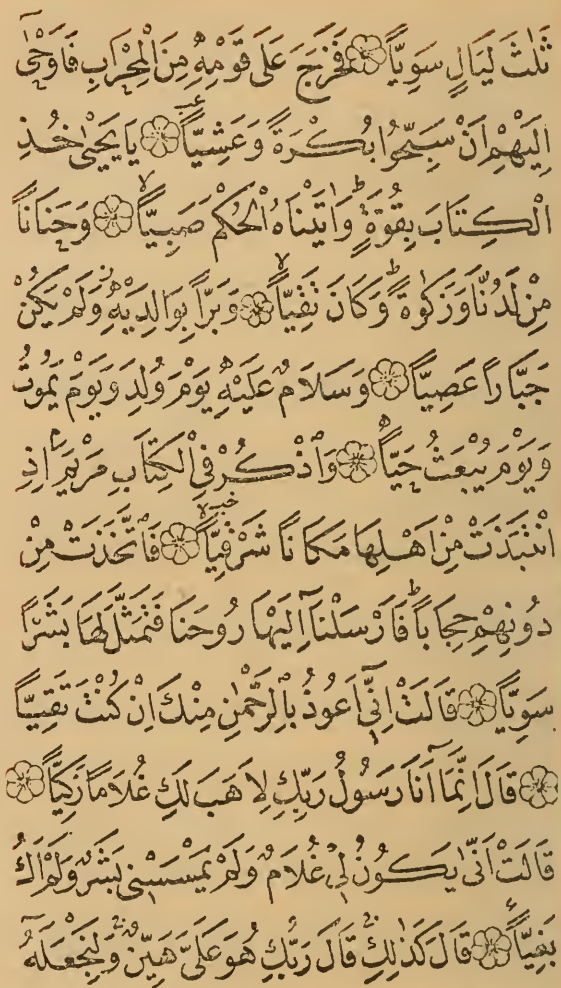 ثَلٰثَ لَيَالٍ سَوِيًّا ۝ فَخَرَجَ عَلٰى قَوْمِهٖ مِنَ الْمِحْرَابِ فَاَوْحٰى
اِلَيْهِمْ اَنْ سَبِّحُوا بُكْرَةً وَعَشِيًّا ۝ يَا يَحْيٰى خُذِ
الْكِتَابَ بِقُوَّةٍ ۗ وَاٰتَيْنَاهُ الْحُكْمَ صَبِيًّا ۝ وَحَنَانًا
مِنْ لَدُنَّا وَزَكٰوةً ۗ وَكَانَ تَقِيًّا ۝ وَبَرًّا بِوَالِدَيْهِ وَلَمْ يَكُنْ
جَبَّارًا عَصِيًّا ۝ وَسَلَامٌ عَلَيْهِ يَوْمَ وُلِدَ وَيَوْمَ يَمُوتُ
وَيَوْمَ يُبْعَثُ حَيًّا ۝ وَاذْكُرْ فِي الْكِتَابِ مَرْيَمَ اِذِ
انْتَبَذَتْ مِنْ اَهْلِهَا مَكَانًا شَرْقِيًّا ۝ فَاتَّخَذَتْ مِنْ
دُونِهِمْ حِجَابًا ۗ فَاَرْسَلْنَا اِلَيْهَا رُوحَنَا فَتَمَثَّلَ لَهَا بَشَرًا
سَوِيًّا ۝ قَالَتْ اِنِّي اَعُوذُ بِالرَّحْمٰنِ مِنْكَ اِنْ كُنْتَ تَقِيًّا
۝ قَالَ اِنَّمَا اَنَا رَسُولُ رَبِّكِ لِاَهَبَ لَكِ غُلَامًا زَكِيًّا ۝
قَالَتْ اَنّٰى يَكُونُ لِي غُلَامٌ وَلَمْ يَمْسَسْنِي بَشَرٌ وَلَمْ اَكُ
بَغِيًّا ۝ قَالَ كَذٰلِكِ قَالَ رَبُّكِ هُوَ عَلَيَّ هَيِّنٌ وَلِنَجْعَلَهُ